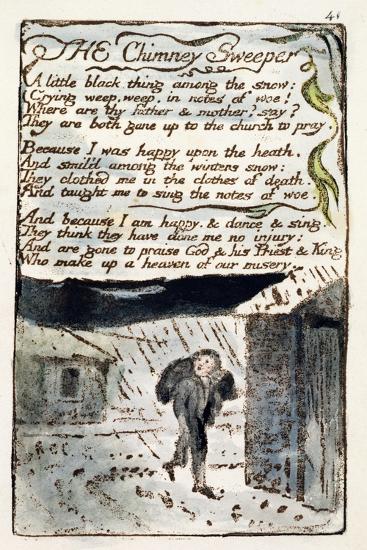 THE Chimney Sweeper
A little black thing among the snow:
Crying weep, weep, in notes of woe!
Where are thy father & mother? say?
They are both gone up to the church to pray.
Because I was happy upon the heath,
And smil'd among the winters snow:
They clothed me in the clothes of death,
And taught me to sing the notes of woe.
And because I am happy, & dance & sing,
They think they have done me no injury:
And are gone to praise God & his Priest & King
Who make up a heaven of our misery.